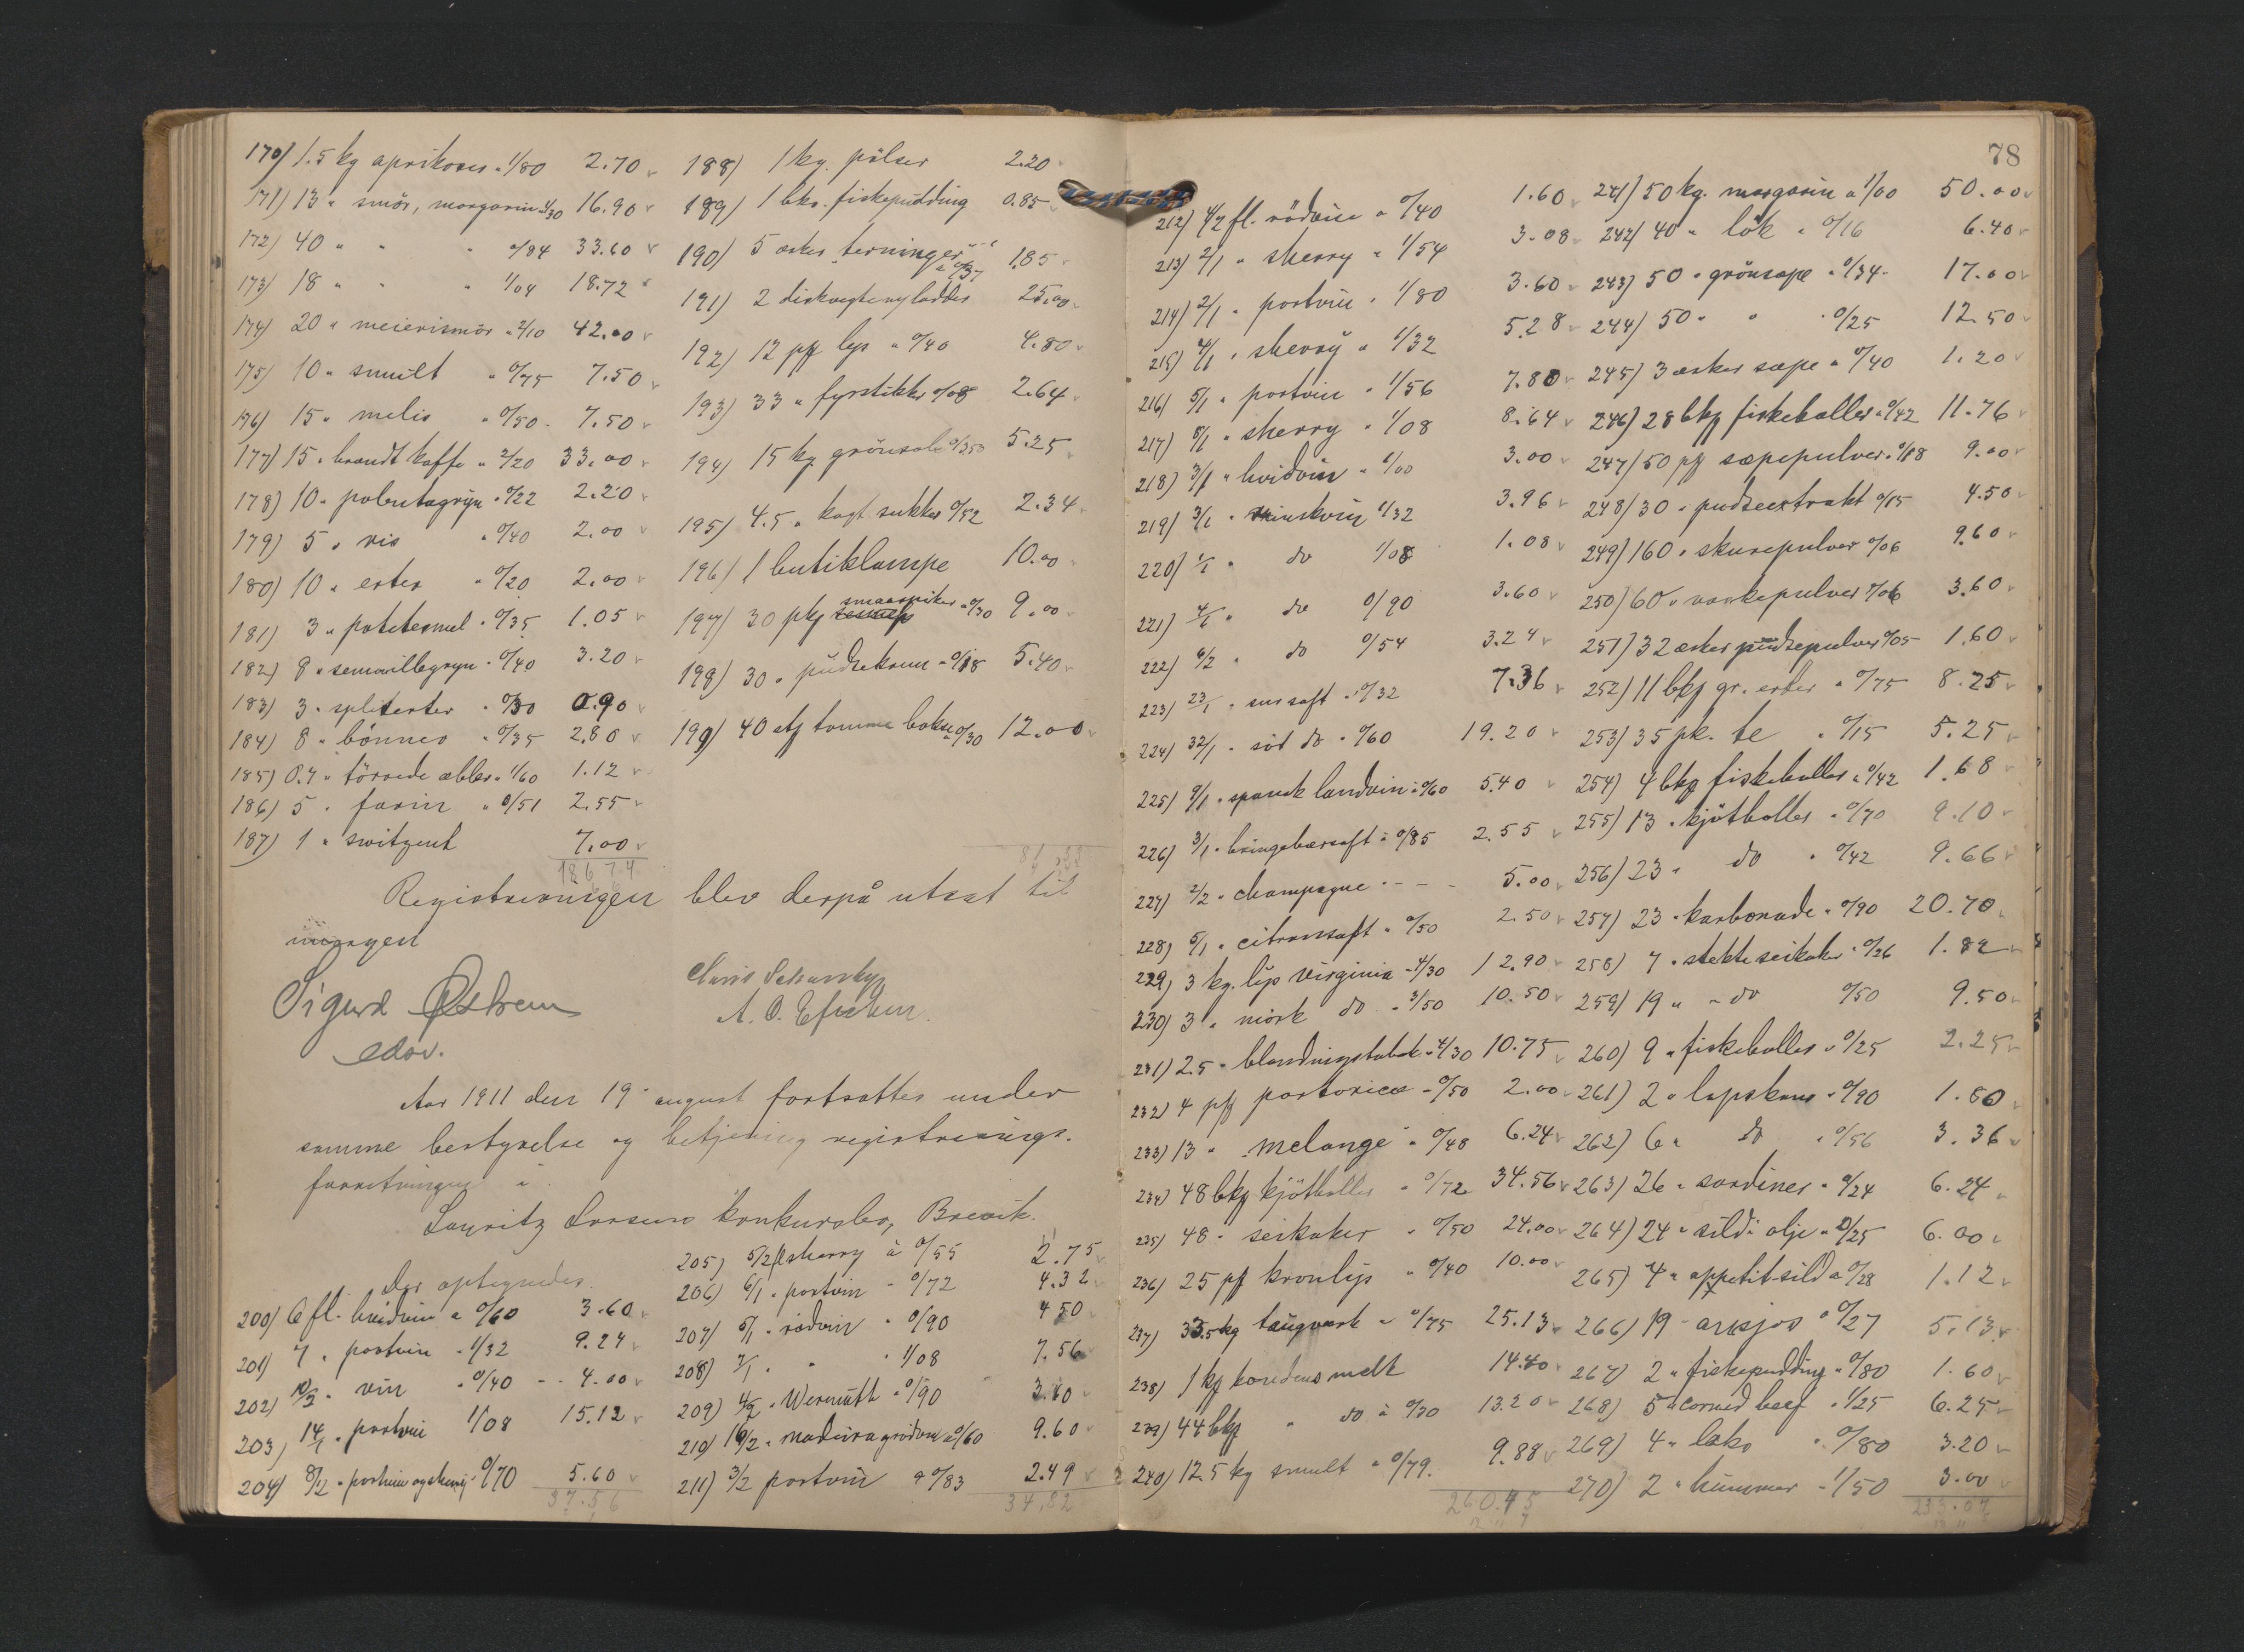 170) 1.5 kg aprikoser " 1/80 2.70
171) 13 " smör, margarin " 1/30 16.90
172) 40 " " " 0/84 33.60
173) 18 " " " 1/04 18.72
174) 20 " meierismör " 2/10 42.00
175) 10 " smult " 0/75 7.50
176) 15 " melis " 0/50 7.50
177) 15 " brændt kaffe " 2/20 33.00
178) 10 " polentagryn " 0/22 2.20
179) 5 " ris " 0/40 2.00
180) 10 " erter " 0/20 2.00
181) 3 " potetesmel " 0/35 1.05
182) 8 " semouillegryn " 0/40 3.20
183) 3 " spliterter " 0/30 0.90
184) 8 " bönner " 0/35 2.80
185) 0.7 " törrede æbler " 1/60 1.12
186) 5 " farin " 0/51 2.55
187) 1 " switzent 7.00
186.74
188) 1 kg. pölser 2.20
189) 1 bks. fiskepudding 0.85
190) 5 æsker terninger " 0/37 1.85
191) 2 25.00
192) 12 pk lys " 0/40 4.80
193) 33 " fyrstikker 0/08 2.64
194) 15 kg grönsalt 5.25
195) 4.5 " kogt sukker 0/52 2.34
196) 1 butiklampe 10.00
197) 30 pk smaaspiker " 0/30 9.00
198) 30 " pudsekrem " 0/18 5.40
199) 40 stk tomme bokser 0/30 12.00
Registreringen blev derpå utsat til
imorgen
Sigurd Østrem
edsv.
Aar 1911 den 19 august fortsattes under
samme bestyrelse og betjening registrerings-
forretningen i
Lauritz Larsens konkursbo, Brevik.
Der optegnedes
200) 6 fl. hvidvin " 0/60 3.60
201) 7 " portvin " 1/32 9.24
202) 10/2 " vin " 0/40 4.00
203) 14/1 " portvin 1/08 15.12
204) 8/2 " portvin og sherry " 0/70 5.60
37.56
205) 5/2 fl sherry à 0/55 2.75
206) 6/1 " portvin " 0/72 4.32
207) 5/1 " rödvin " 0/90 4.50
208) 7/1 " " " 1/08 7.56
209) 4/2 " Wermuth " 0/90 3.60
210) 16/2 " madeira " 0/60 9.60
211) 3/2 portvin " 0/83 2.49
34,82
78
212) 4/2 fl. rödvin " 0/40 1.60
213) 2/1 " sherry " 1/54 3.08
214) 2/1 " portvin " 1/80 3.60
215) 4/1 " sherry " 1/32 5.28
216) 5/1 " portvin " 1/56 7.80
217) 8/1 " sherry " 1/08 8.64
218) 3/1 " hvidvin " 1/00 3.00
219) 3/1 " rinskvin 1/32 3.96
220) 1/1 " do 1/08 1.08
221) 4/1 " do 0/90 3.60
222) 6/2 " do 0/54 3.24
223) 23/1 " sur saft " 0/32 7.36
224) 32/1 " söt do " 0/60 19.20
225) 9/1 " spansk landvin " 0/60 5.40
226) 3/1 " bringebærsaft " 0/85 2.55
227) 2/2 " champagne 5.00
228) 5/1 " citronsaft " 0/50 2.50
229) 3 kg. lys virginia " 4/30 12.90
230) 3 " mörk do " 3/50 10.50
231) 2.5 " blandningstobak " 4/30 10.75
232) 4 pk portorico " 0/50 2.00
233) 13 " melange " 0/48 6.24
234) 48 bks kjötboller " 0/72 34.56
235) 48 " seikaker " 0/50 24.00
236) 25 pk kronlys " 0/40 10.00
237) 33.5 kg taugverk " 0/75 25.13
238) 1 ks kondens melk 14.40
239) 44 bks " do à 0/30 13.20
240) 12.5 kg smult " 0/79. 9.88
260.45
241) 50 kg. margarin à 1/00 50.00
242) 40 " lök " 0/16 6.40
243) 50 " grönsæpe " 0/34 17.00
244) 50 " " " 0/25 12.50
245) 3 æsker sæpe " 0/40 1.20
246) 28 bks fiskeboller " 0/42 11.76
247) 50 pk sæpepulver " 0/18 9.00
248) 30 " pudseextrakt 0/15 4.50
249) 160 " skurepulver 0/06 9.60
250) 60 " vaskepulver 0/06 3.60
251) 32 æsker pudsepulver 0/05 1.60
252) 11 bks gr. erter " 0/75 8.25
253) 35 pk. te " 0/15 5.25
254) 4 bks fiskeboller " 0/42 1.68
255) 13 " kjötboller " 0/70 9.10
256) 23 " do " 0/42 9.66
257) 23 " karbonade " 0/90 20.70
258) 7 " stekte seikaker " 0/26 1.82
259) 19 " " do 0/50 9.50
260) 9 " fiskeboller " 0/25 2.25
261) 2 " lapskaus " 0/90 1.80
262) 6 " do " 0/56 3.36
263) 26 " sardiner " 0/24 6.24
264) 24 " sild i olje " 0/25 6.00
265) 4 " appetit-sild à 0/28 1.12
266) 19 " ansjos " 0/27 5.13
267) 2 " fiskepudding " 0/80 1.60
268) 5 " corned beef " 1/25 6.25
269) 4 " laks " 0/80 3.20
270) 2 " hummer " 1/50 3.00
233.07